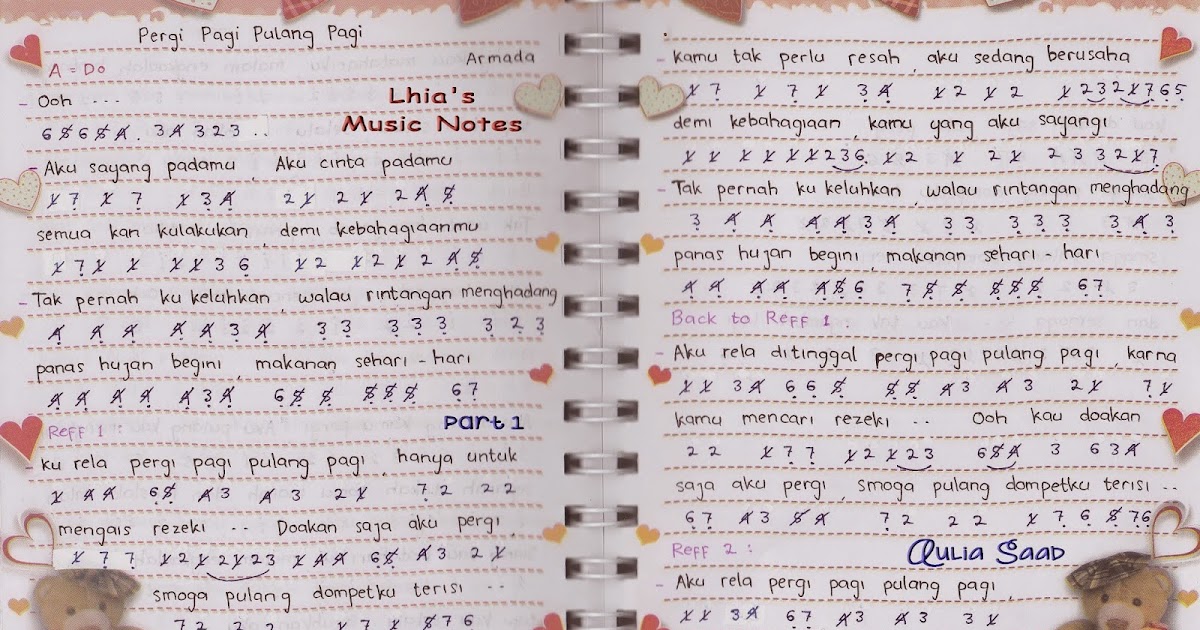 Pergi Pagi Pulang Pagi
Armada
A = Do
Lhia's
Music Notes
- Ooh ...
6 5̸ 6 5̸ 4̸ . 3 4̸ 3 2 3 ..
- Aku sayang padamu , Aku cinta padamu
1̸ 7 1̸ 7 1̸ 3 4̸ 2 1̸ 2 1̸ 2 4̸ 5̸
semua kan kulakukan , demi kebahagiaanmu
1̸ 7 1̸ 1̸ 1̸ 1̸ 3 6 1̸ 2 1̸ 2 1̸ 2 4̸ 5̸
- Tak pernah ku keluhkan , walau rintangan menghadang
4̸ 4̸ 4̸ 4̸ 4̸ 3 4̸ 3 3 3 3 3 3 2 3
panas hujan begini , makanan sehari - hari
4̸ 4̸ 4̸ 4̸ 4̸ 3 4̸ 6 5̸ 5̸ 5̸ 5̸ 5̸ 6 7
Reff 1 :
Part 1
- ku rela pergi pagi pulang pagi , hanya untuk
1̸ 4̸ 4̸ 6 5̸ 4̸ 3 4̸ 3 2 1̸ 7 2 2 2
mengais rezeki .. Doakan saja aku pergi ,
1̸ 7 7 1̸ 2 1̸ 2 1̸ 2 3 1̸ 4̸ 4̸ 6 5̸ 4̸ 3 2 1̸
smoga pulang dompetku terisi ..
7 2 2 2 1̸ 7 1̸ 5̸ 7 6
- kamu tak perlu resah , aku sedang berusaha
1̸ 7 1̸ 7 1̸ 3 4̸ 1̸ 2 1̸ 2 1̸ 2 3 2 1̸ 7 6 5
demi kebahagiaan , kamu yang aku sayangi
1̸ 1̸ 1̸ 1̸ 1̸ 1̸ 2 3 6 1̸ 2 1̸ 2 1̸ 2 3 3 2 1̸ 7
- Tak pernah ku keluhkan , walau rintangan menghadang
3 4̸ 4̸ 4̸ 4̸ 3 4̸ 3 3 3 3 3 3 4̸ 3
panas hujan begini , makanan sehari - hari
4̸ 4̸ 4̸ 4̸ 4̸ 5̸ 6 7 5̸ 5̸ 5̸ 5̸ 5̸ 6 7
Back to Reff 1 :
- Aku rela ditinggal pergi pagi pulang pagi , karna
1̸ 1̸ 3 4̸ 6 6 5̸ 5̸ 5̸ 4̸ 3 4̸ 3 2 1̸ 7 1̸
kamu mencari rezeki .. Ooh kau doakan
2 2 1̸ 7 7 1̸ 2 1̸ 2 3 6 5̸ 4̸ 3 6 3 4̸
saja aku pergi , smoga pulang dompetku terisi ..
6 7 4̸ 3 5̸ 4̸ 7 2 2 2 1̸ 7 6 5̸ 7 6
Reff 2 :
Aulia Saad
- Aku rela pergi pagi pulang pagi ,
1̸ 1̸ 3 4̸ 6 7 4̸ 3 4̸ 3 3 1̸